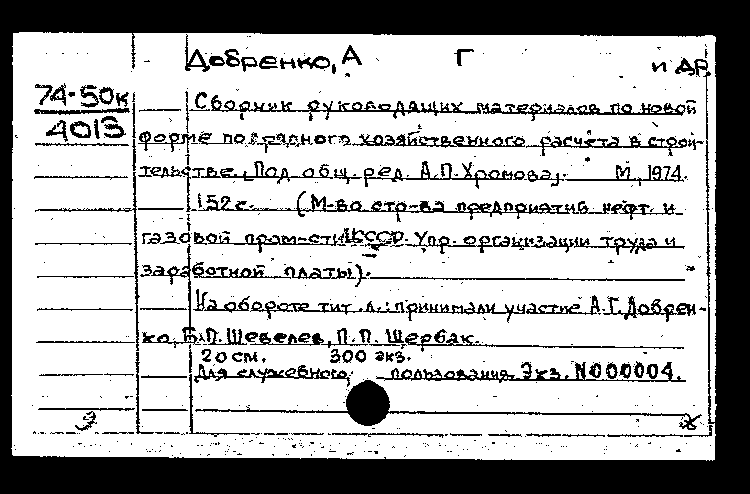 Добренко, А Г и др.
74-50к
4013
Сборник руководящих материалов по новой
форме подрядного хозяйственного расчета в строи-
тельстве. Под общ. ред. А.П. Хромова. М., 1974.
152 с. (М-во стр-ва предприятий нефт. и
газовой пром-сти СССР. Упр. организации труда и
заработной платы).
На обороте тит. л.: принимали участие А.Г. Добрен-
ко, Б.П. Шевелев, П.П. Щербак.
20 см. 300 экз.
Для служебного пользования. Экз. N000004.